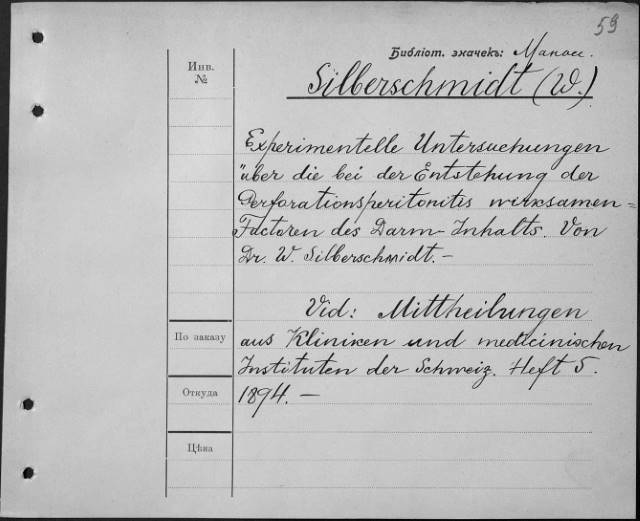 59
Библіот. значекъ:
Инв. №
Silberschmidt (W.)
Experimentelle Untersuchungen
über die bei der Entstehung der
Perforationsperitonitis wirksamen=
Factoren des Darm-Inhalts. Von
Dr. W. Silberschmidt.—
Vid: Mittheilungen
По заказу
aus Kliniken und medicinischen
Instituten der Schweiz. Heft 5.
Откуда
1894.—
Цѣна